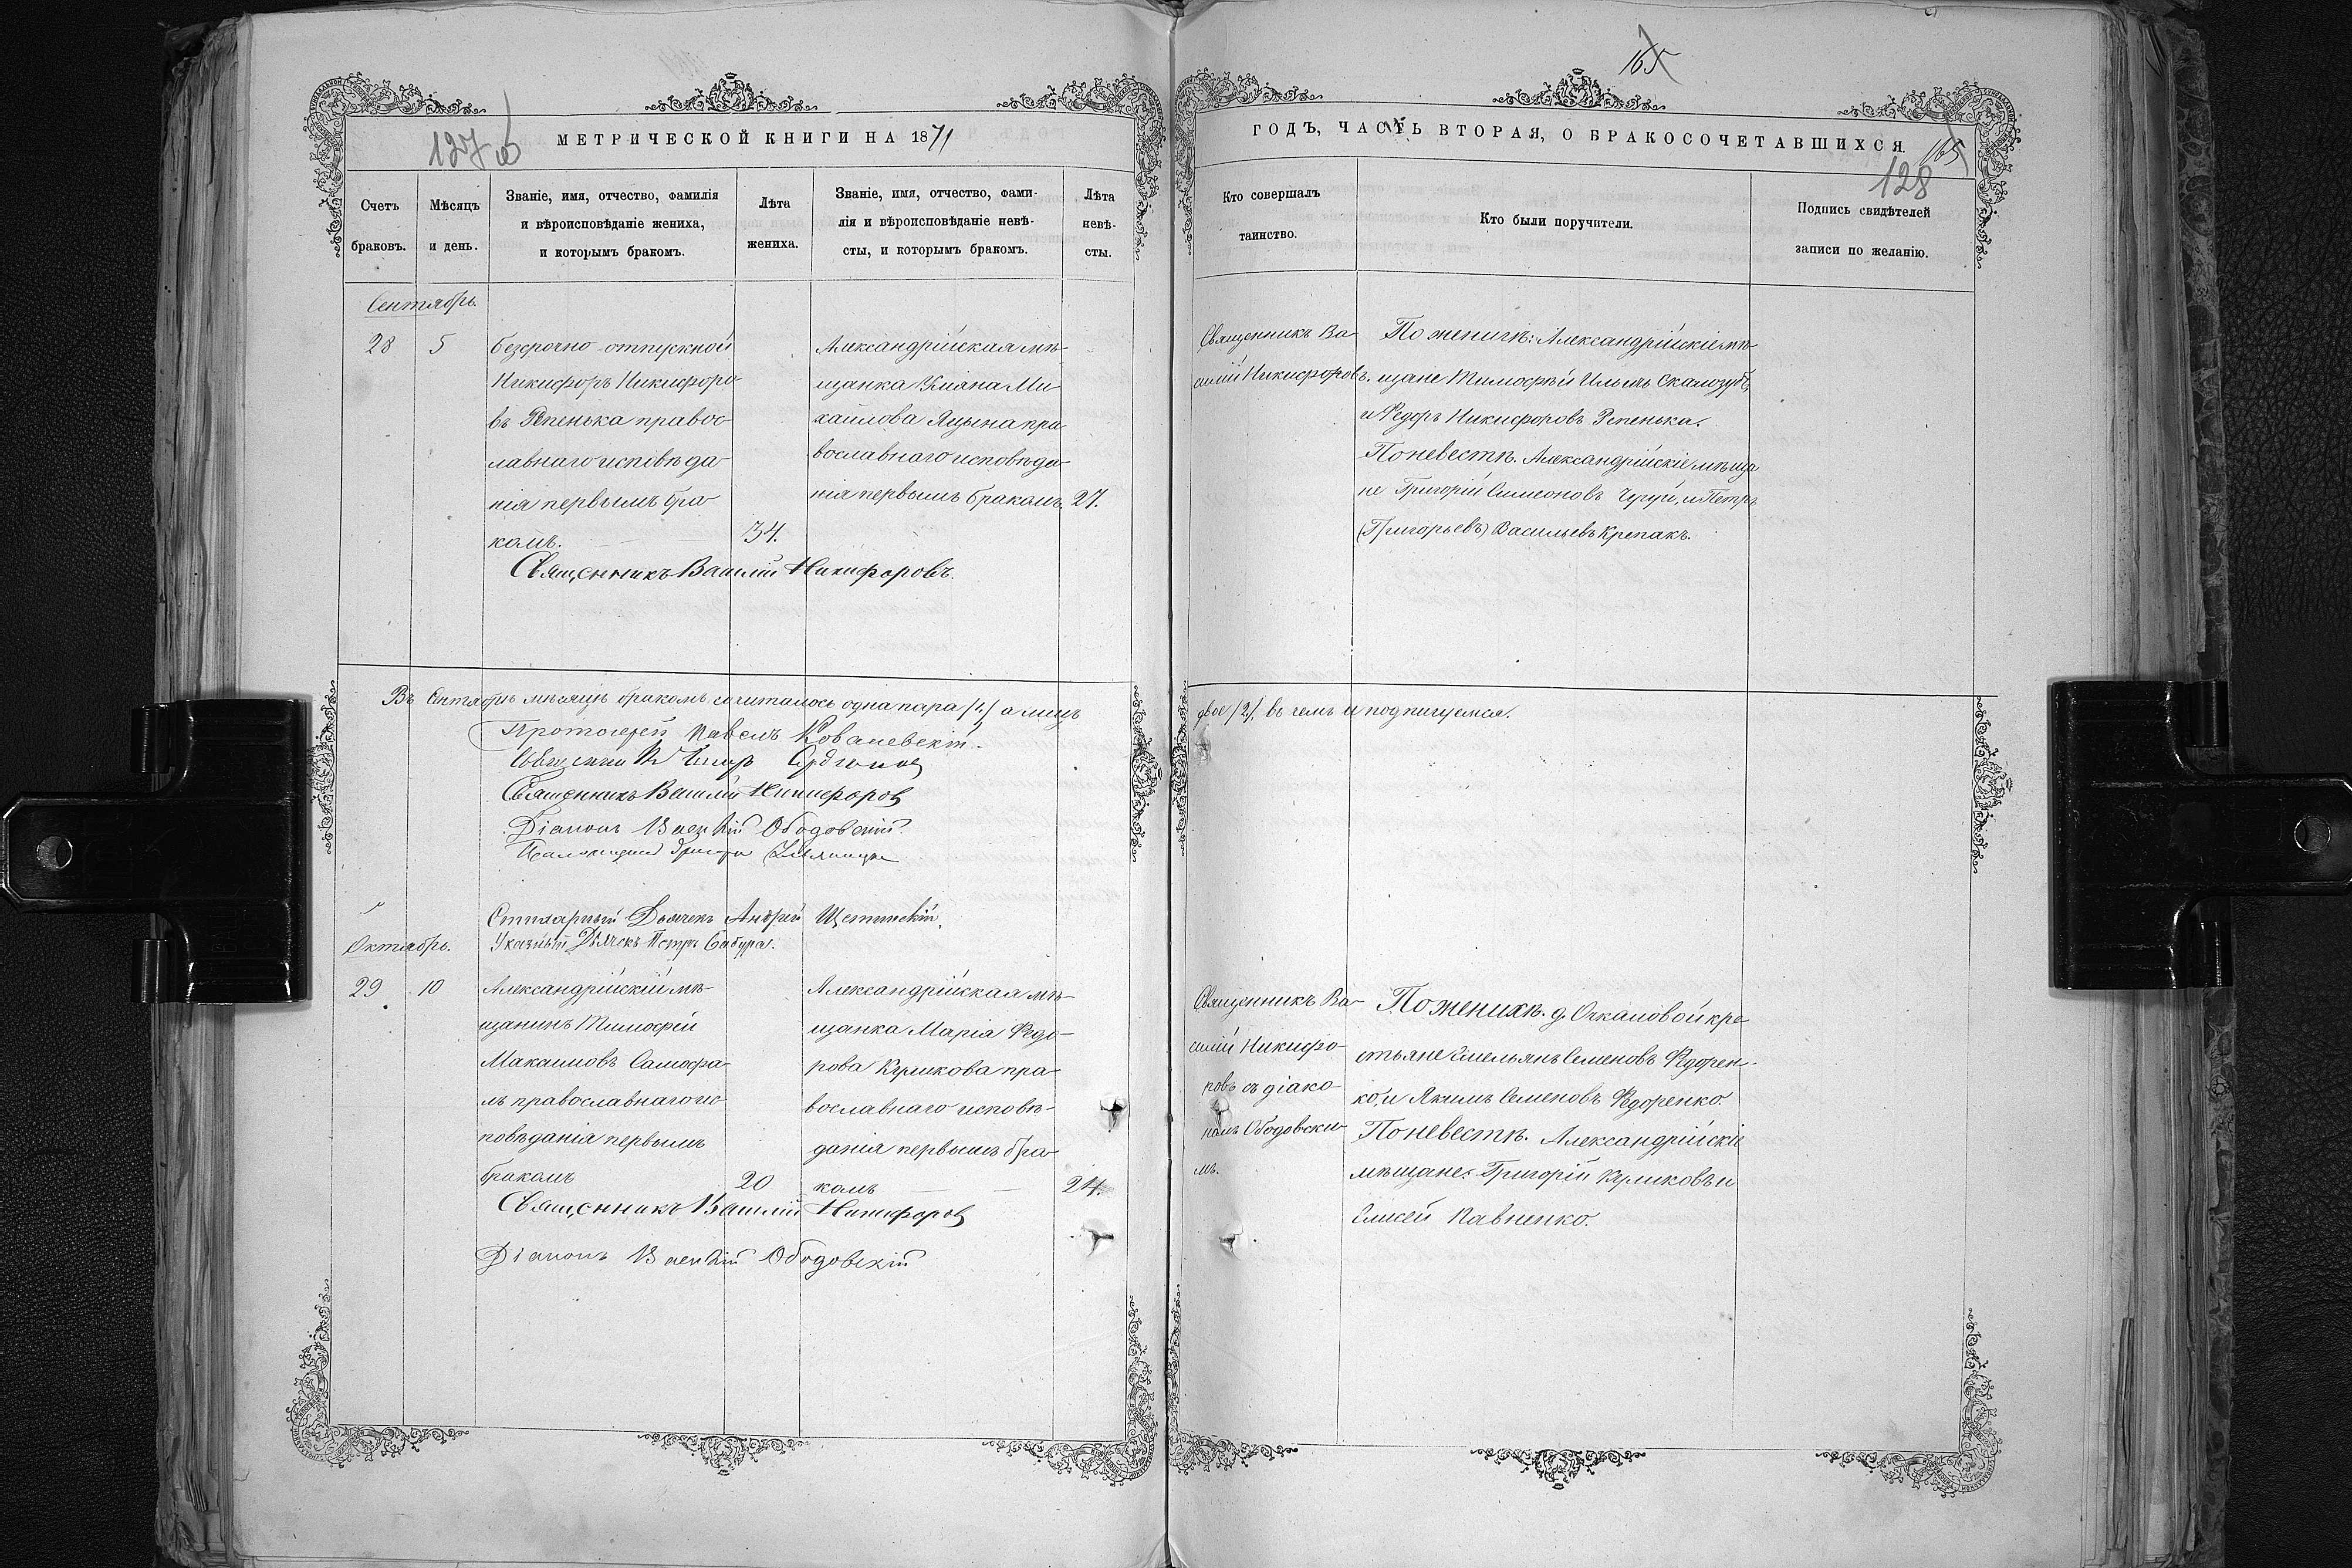 165
127 об
МЕТРИЧЕСКОЙ КНИГИ НА 1871
ГОДЪ, ЧАСТЬ ВТОРАЯ, О БРАКОСОЧЕТАВШИХСЯ.
165
128
Счетъ
браковъ.
Мѣсяцъ
и день.
Званіе, имя, отчество, фамилія
и вѣроисповѣданіе жениха,
и которымъ бракомъ.
Лѣта
жениха.
Званіе, имя, отчество, фами-
лія и вѣроисповѣданіе невѣ-
сты, и которымъ бракомъ.
Лѣта
невѣ-
сты.
Кто совершалъ
таинство.
Кто были поручители.
Подпись свидѣтелей
записи по желанію.
Сентябрь.
28
5
безсрочно-отпускной
Никифоръ Никифоро
въ Репенька правос
лавнаго исповѣда
нія первымъ бра
комъ.
34.
Александрійская мѣ-
щанка Уліана Ми
хайлова Яцына пра
вославнаго исповѣда
нія первымъ бракомъ.
27.
Священникъ Василій Никифоровъ.
Священникъ Ва
силій Никифоровъ.
По женихѣ: Александрійскіе мѣ
щане Тимофѣй Ильинъ Скалозубъ,
и Ѳедоръ Никифоровъ Репенька.
По невестѣ. Александрійскіе мѣща
не Григорій Симеоновъ Чугуй, и Петръ
(Григорьевъ) Васильевъ Крепакъ.
Въ Сентябрѣ мѣсяцѣ бракомъ сочиталось одна пара /1/ а лицъ
двое /2/. въ чемъ и подпишемся.
Протоіерей Павелъ Ковалевскій.
Священникъ
Священникъ Василій Никифоровъ
Діаконъ Ободовскій.
Штатный Дьячекъ Андрей Щетинскій.
Указный Дьячекъ Петръ Сабура.
Октябрь.
29
10
Александрійскій мѣ-
щанинъ Тимофѣй
Максимовъ Самофа
лъ православнаго ис-
повѣданія первымъ
бракомъ
20
Александрійская мѣ-
щанка Марія Ѳедо-
рова Куликова пра
вославнаго исповѣ-
данія первымъ бра
комъ
24.
Священникъ Василій Никифоровъ
Діаконъ Ободовскій
Священникъ Ва-
силій Никифо-
ровъ съ діако
номъ Ободовски
мъ.
По женихѣ. д. Очкаловой кре
стьяне Емельянъ Семеновъ Ѳедорен-
ко, и Якимъ Семеновъ Ѳедоренко.
По невестѣ. Александрійскіе
мѣщане: Григорій Куликовъ и
Елисей Павленко.